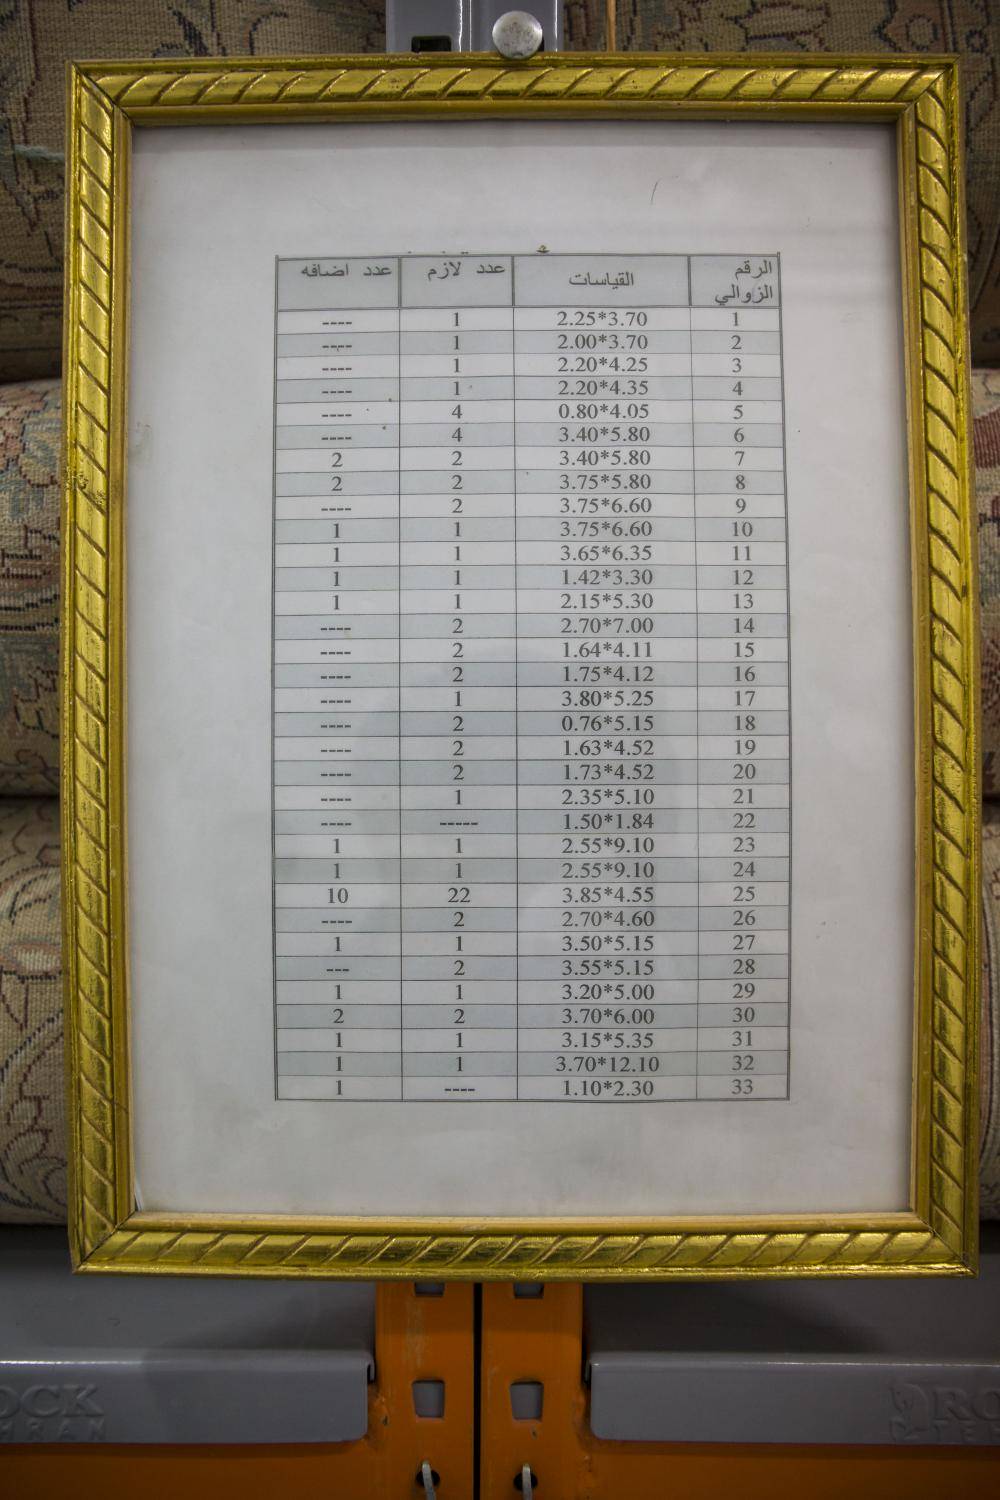 الرقم الزوالي القياسات عدد لازم عدد اضافه
1 2.25*3.70 1 ----
2 2.00*3.70 1 ----
3 2.20*4.25 1 ----
4 2.20*4.35 1 ----
5 0.80*4.05 4 ----
6 3.40*5.80 4 ----
7 3.40*5.80 2 2
8 3.75*5.80 2 2
9 3.75*6.60 2 ----
10 3.75*6.60 1 1
11 3.65*6.35 1 1
12 1.42*3.30 1 1
13 2.15*5.30 1 1
14 2.70*7.00 2 ----
15 1.64*4.11 2 ----
16 1.75*4.12 2 ----
17 3.80*5.25 1 ----
18 0.76*5.15 2 ----
19 1.63*4.52 2 ----
20 1.73*4.52 2 ----
21 2.35*5.10 1 ----
22 1.50*1.84 ----- ----
23 2.55*9.10 1 1
24 2.55*9.10 1 1
25 3.85*4.55 22 10
26 2.70*4.60 2 ----
27 3.50*5.15 1 1
28 3.55*5.15 2 ---
29 3.20*5.00 1 1
30 3.70*6.00 2 2
31 3.15*5.35 1 1
32 3.70*12.10 1 1
33 1.10*2.30 ---- 1